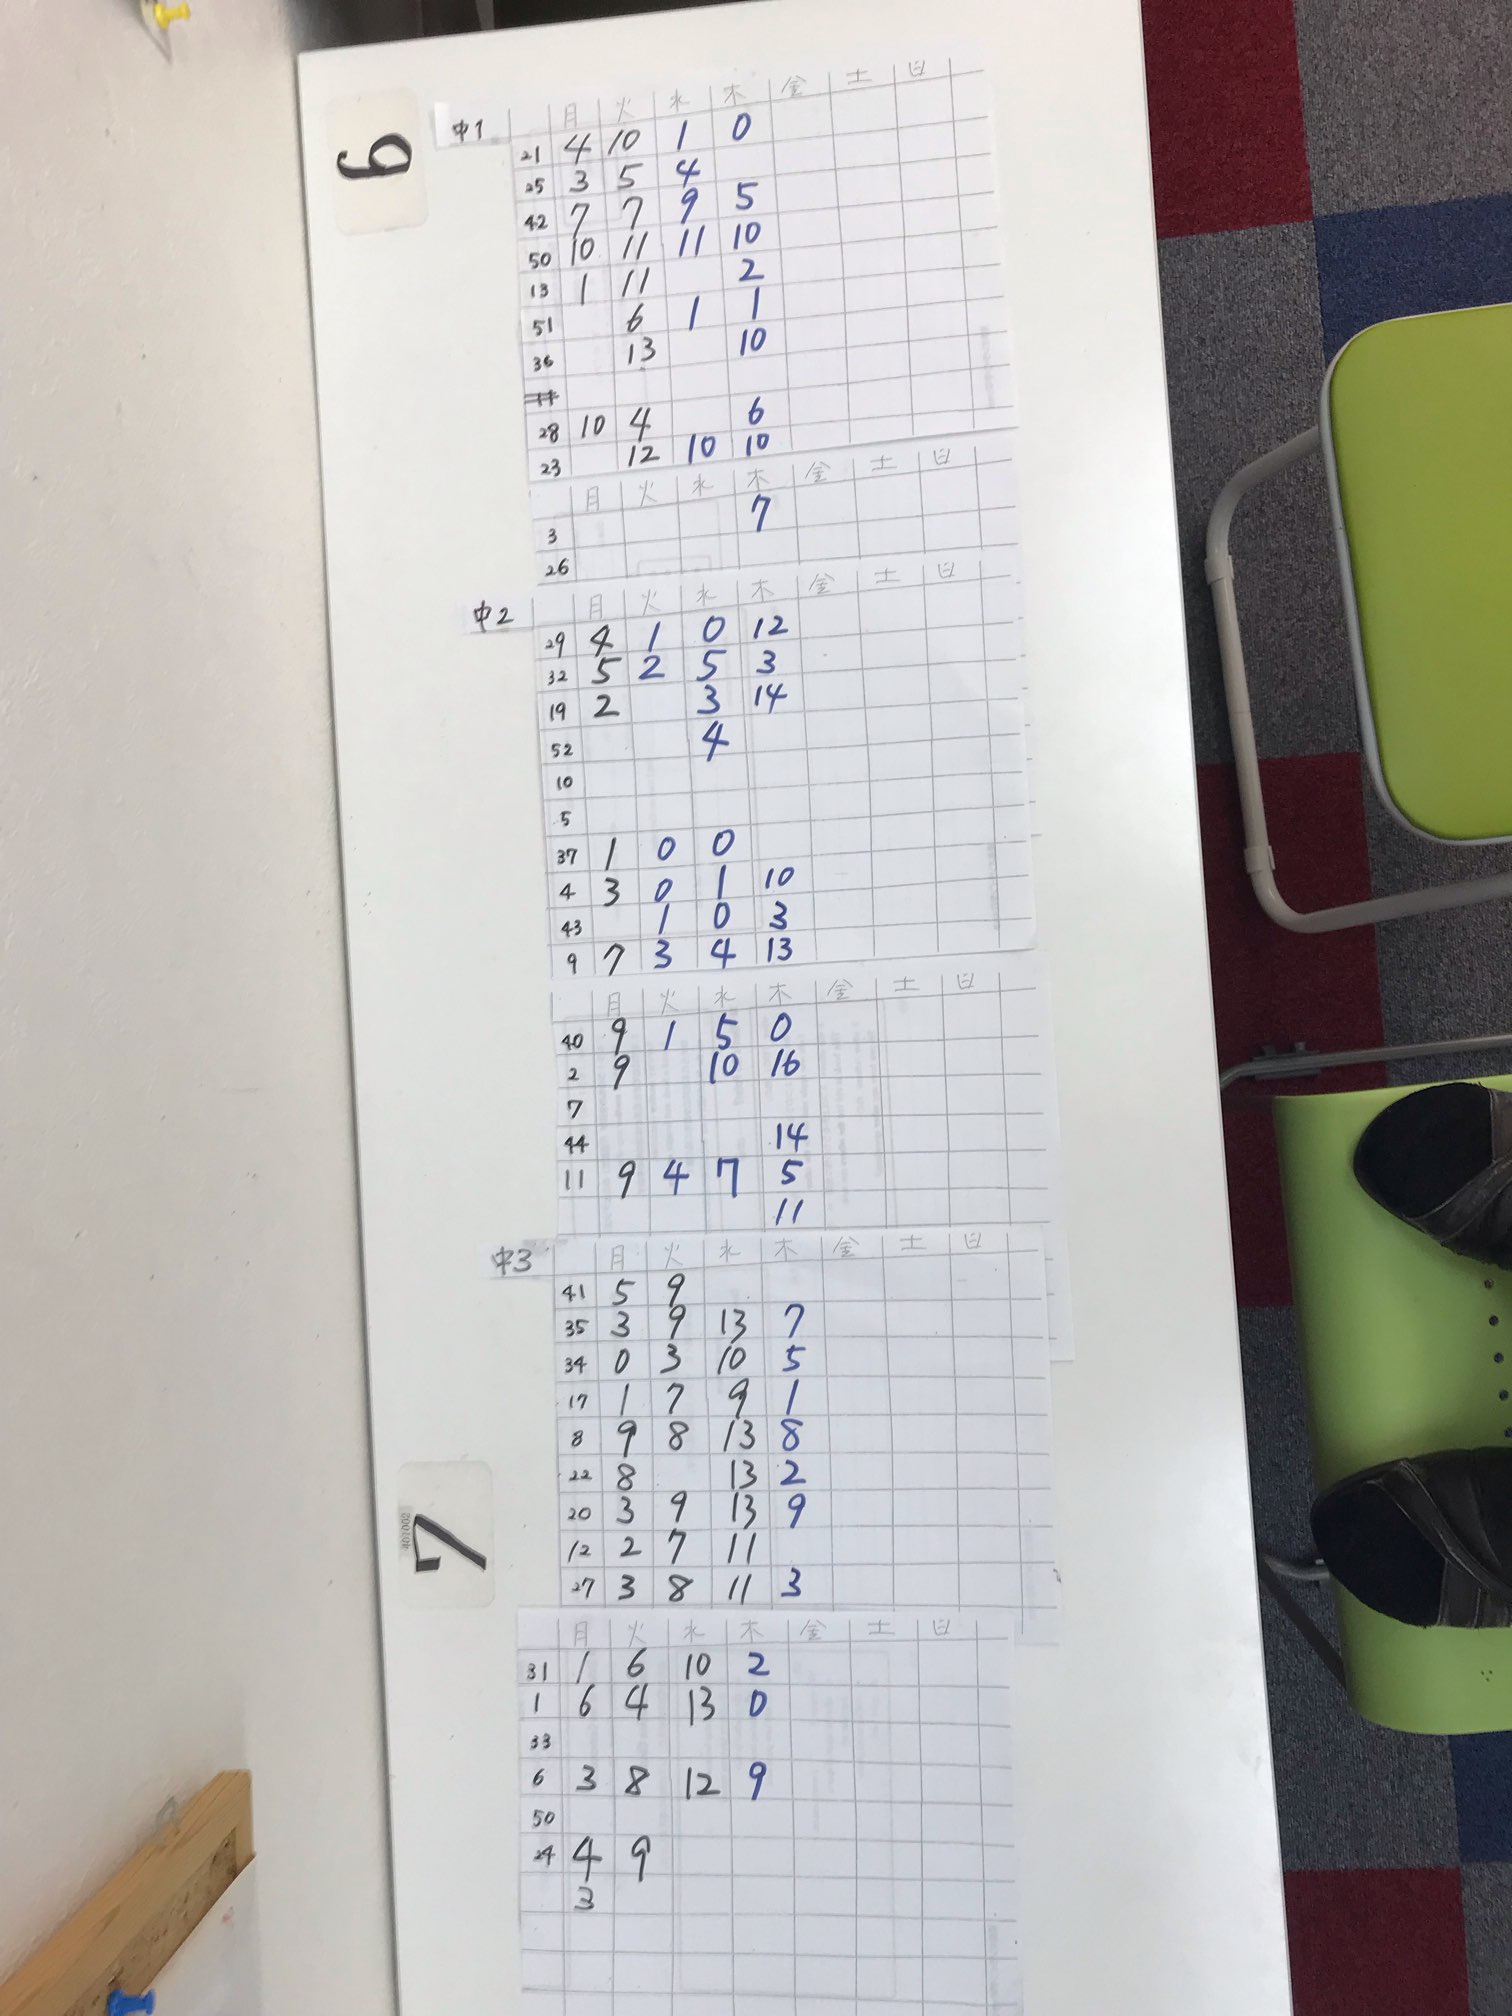 6
中1
月 火 水 木 金 土 日
21 4 10 1 0
25 3 5 4
42 7 7 9 5
50 10 11 11 10
13 1 11 2
51 6 1 1
36 13 10
28 10 4 6
23 12 10 10
月 火 水 木 金 土 日
3 7
26
中2
月 火 水 木 金 土 日
29 4 1 0 12
32 5 2 5 3
19 2 3 14
52 4
10
5
37 1 0 0
4 3 0 1 10
43 1 0 3
9 7 3 4 13
月 火 水 木 金 土 日
40 9 1 5 0
2 9 10 16
7
44 14
11 9 4 7 5
11
中3
月 火 水 木 金 土 日
41 5 9
35 3 9 13 7
34 0 3 10 5
17 1 7 9 1
8 9 8 13 8
22 8 13 2
20 3 9 13 9
12 2 7 11
27 3 8 11 3
7
月 火 水 木 金 土 日
31 1 6 10 2
1 6 4 13 0
33
6 3 8 12 9
50
24 4 9
3